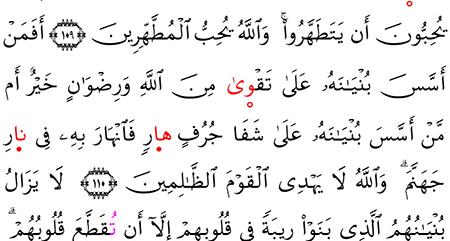 يُحِبُّونَ أَن يَتَطَهَّرُواْۚ وَٱللَّهُ يُحِبُّ ٱلْمُطَّهِّرِينَ ١٠٩ أَفَمَنْ
أَسَّسَ بُنْيَٰنَهُۥ عَلَىٰ تَقْوىٰ مِنَ ٱللَّهِ وَرِضْوَٰنٍ خَيْرٌ أَم
مَّنْ أَسَّسَ بُنْيَٰنَهُۥ عَلَىٰ شَفَا جُرُفٍ هارٍ فَٱنْهَارَ بِهِۦ فِى نارِ
جَهَنَّمَۗ وَٱللَّهُ لَا يَهْدِى ٱلْقَوْمَ ٱلظَّٰلِمِينَ ١١٠ لَا يَزَالُ
بُنْيَٰنُهُمُ ٱلَّذِى بَنَوْاْ رِيبَةً فِى قُلُوبِهِمْ إِلَّا أَن تُقَطَّعَ قُلُوبُهُمْۗ